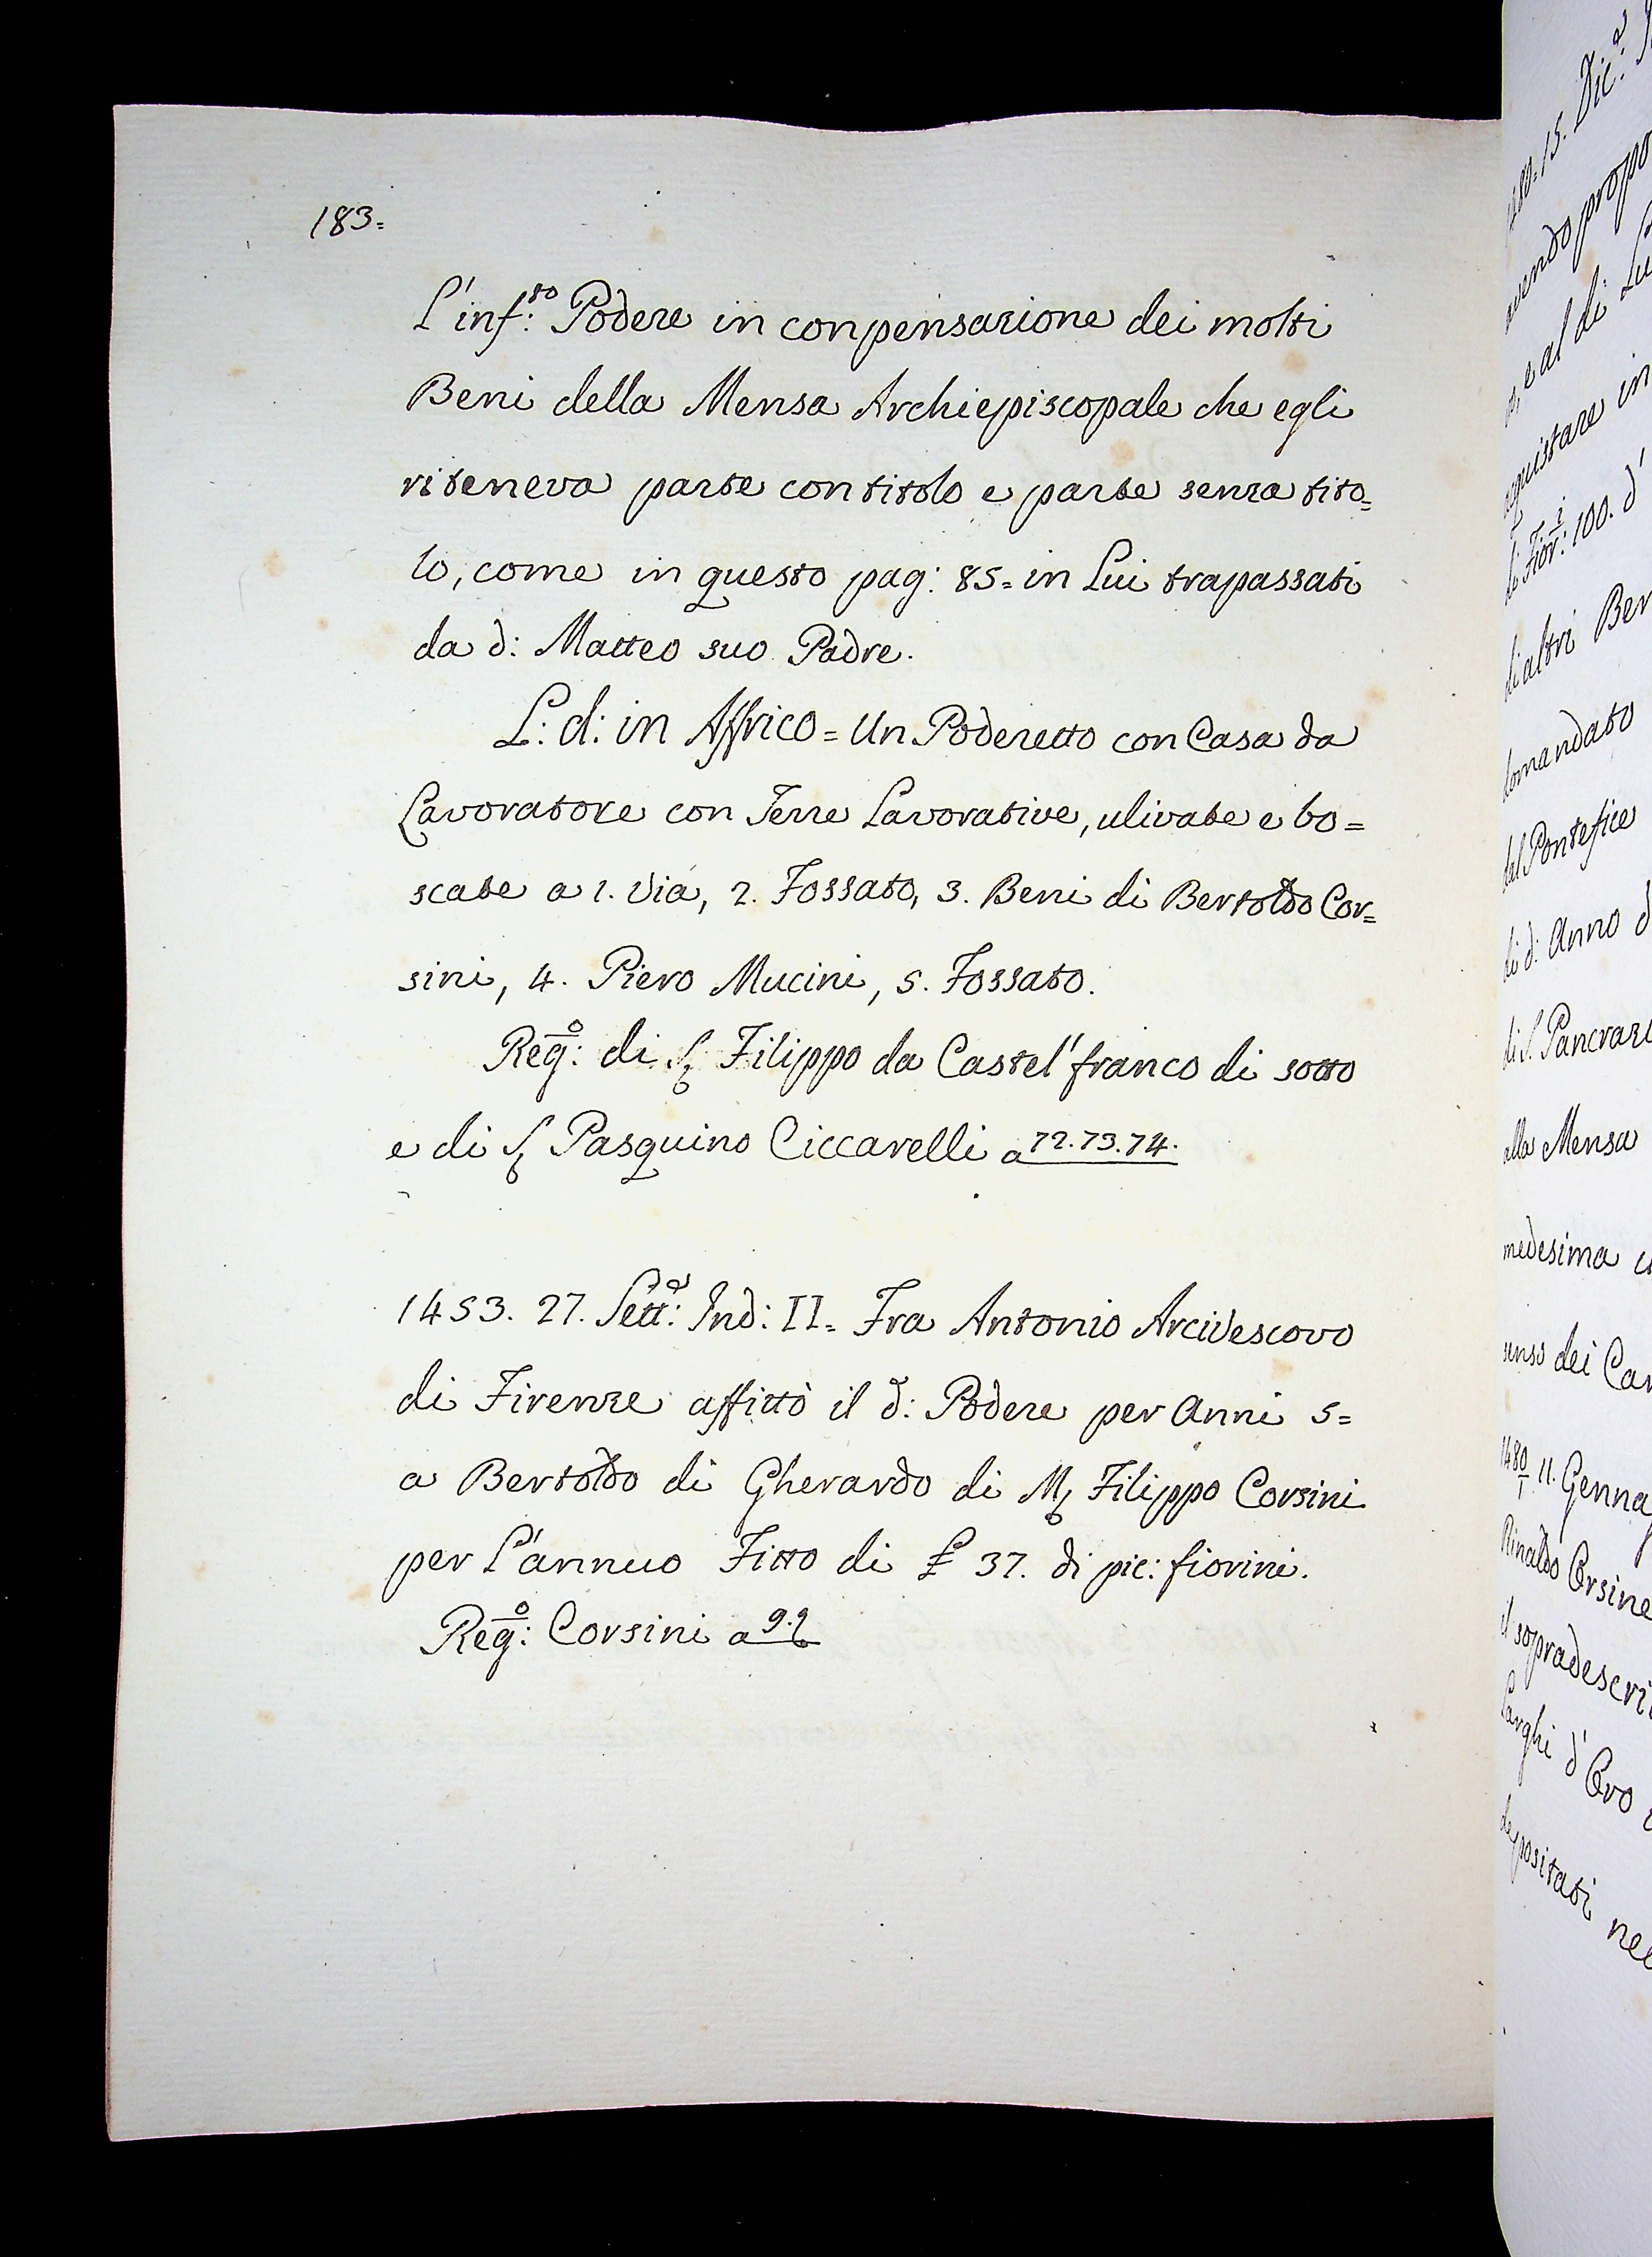 183=
L'inf:to Podere in conpensazione dei molti
Beni della Mensa Archiepiscopale che egli
riteneva parte con titolo e parte senza tito=
lo, come in questo pag: 85= in Lui trapassati
da d: Matteo suo Padre.
L: d: in Affrico = Un Poderetto con Casa da
Lavoratore con Terre Lavorative, ulivate e bo=
scate a 1. Via, 2. Fossato, 3. Beni di Bertoldo Cor=
sini, 4. Piero Mucini, 5. Fossato.
Reg:o di S. Filippo da Castel'franco di sotto
e di S. Pasquino Ciccarelli a 72.73.74.
1453. 27. Sett:e Ind: II= Fra Antonio Arcivescovo
di Firenze affittò il d: Podere per Anni 5=
a Bertoldo di Gherardo di M. Filippo Corsini
per L'annuo Fitto di £ 37. di pic: fiorini.
Reg:o Corsini a 9.
15. Dic:e
avendo propo
e al di Lu
quistare in
di Fior:i 100. d'
di altri Ben
domandato
dal Pontefice
di d: Anno d
di S. Pancrazi
alla Mensa
medesima c
senso dei Can
1480/1 11. Genna
Rinaldo Orsine
il sopradescri
Larghi d'Oro
depositati nel